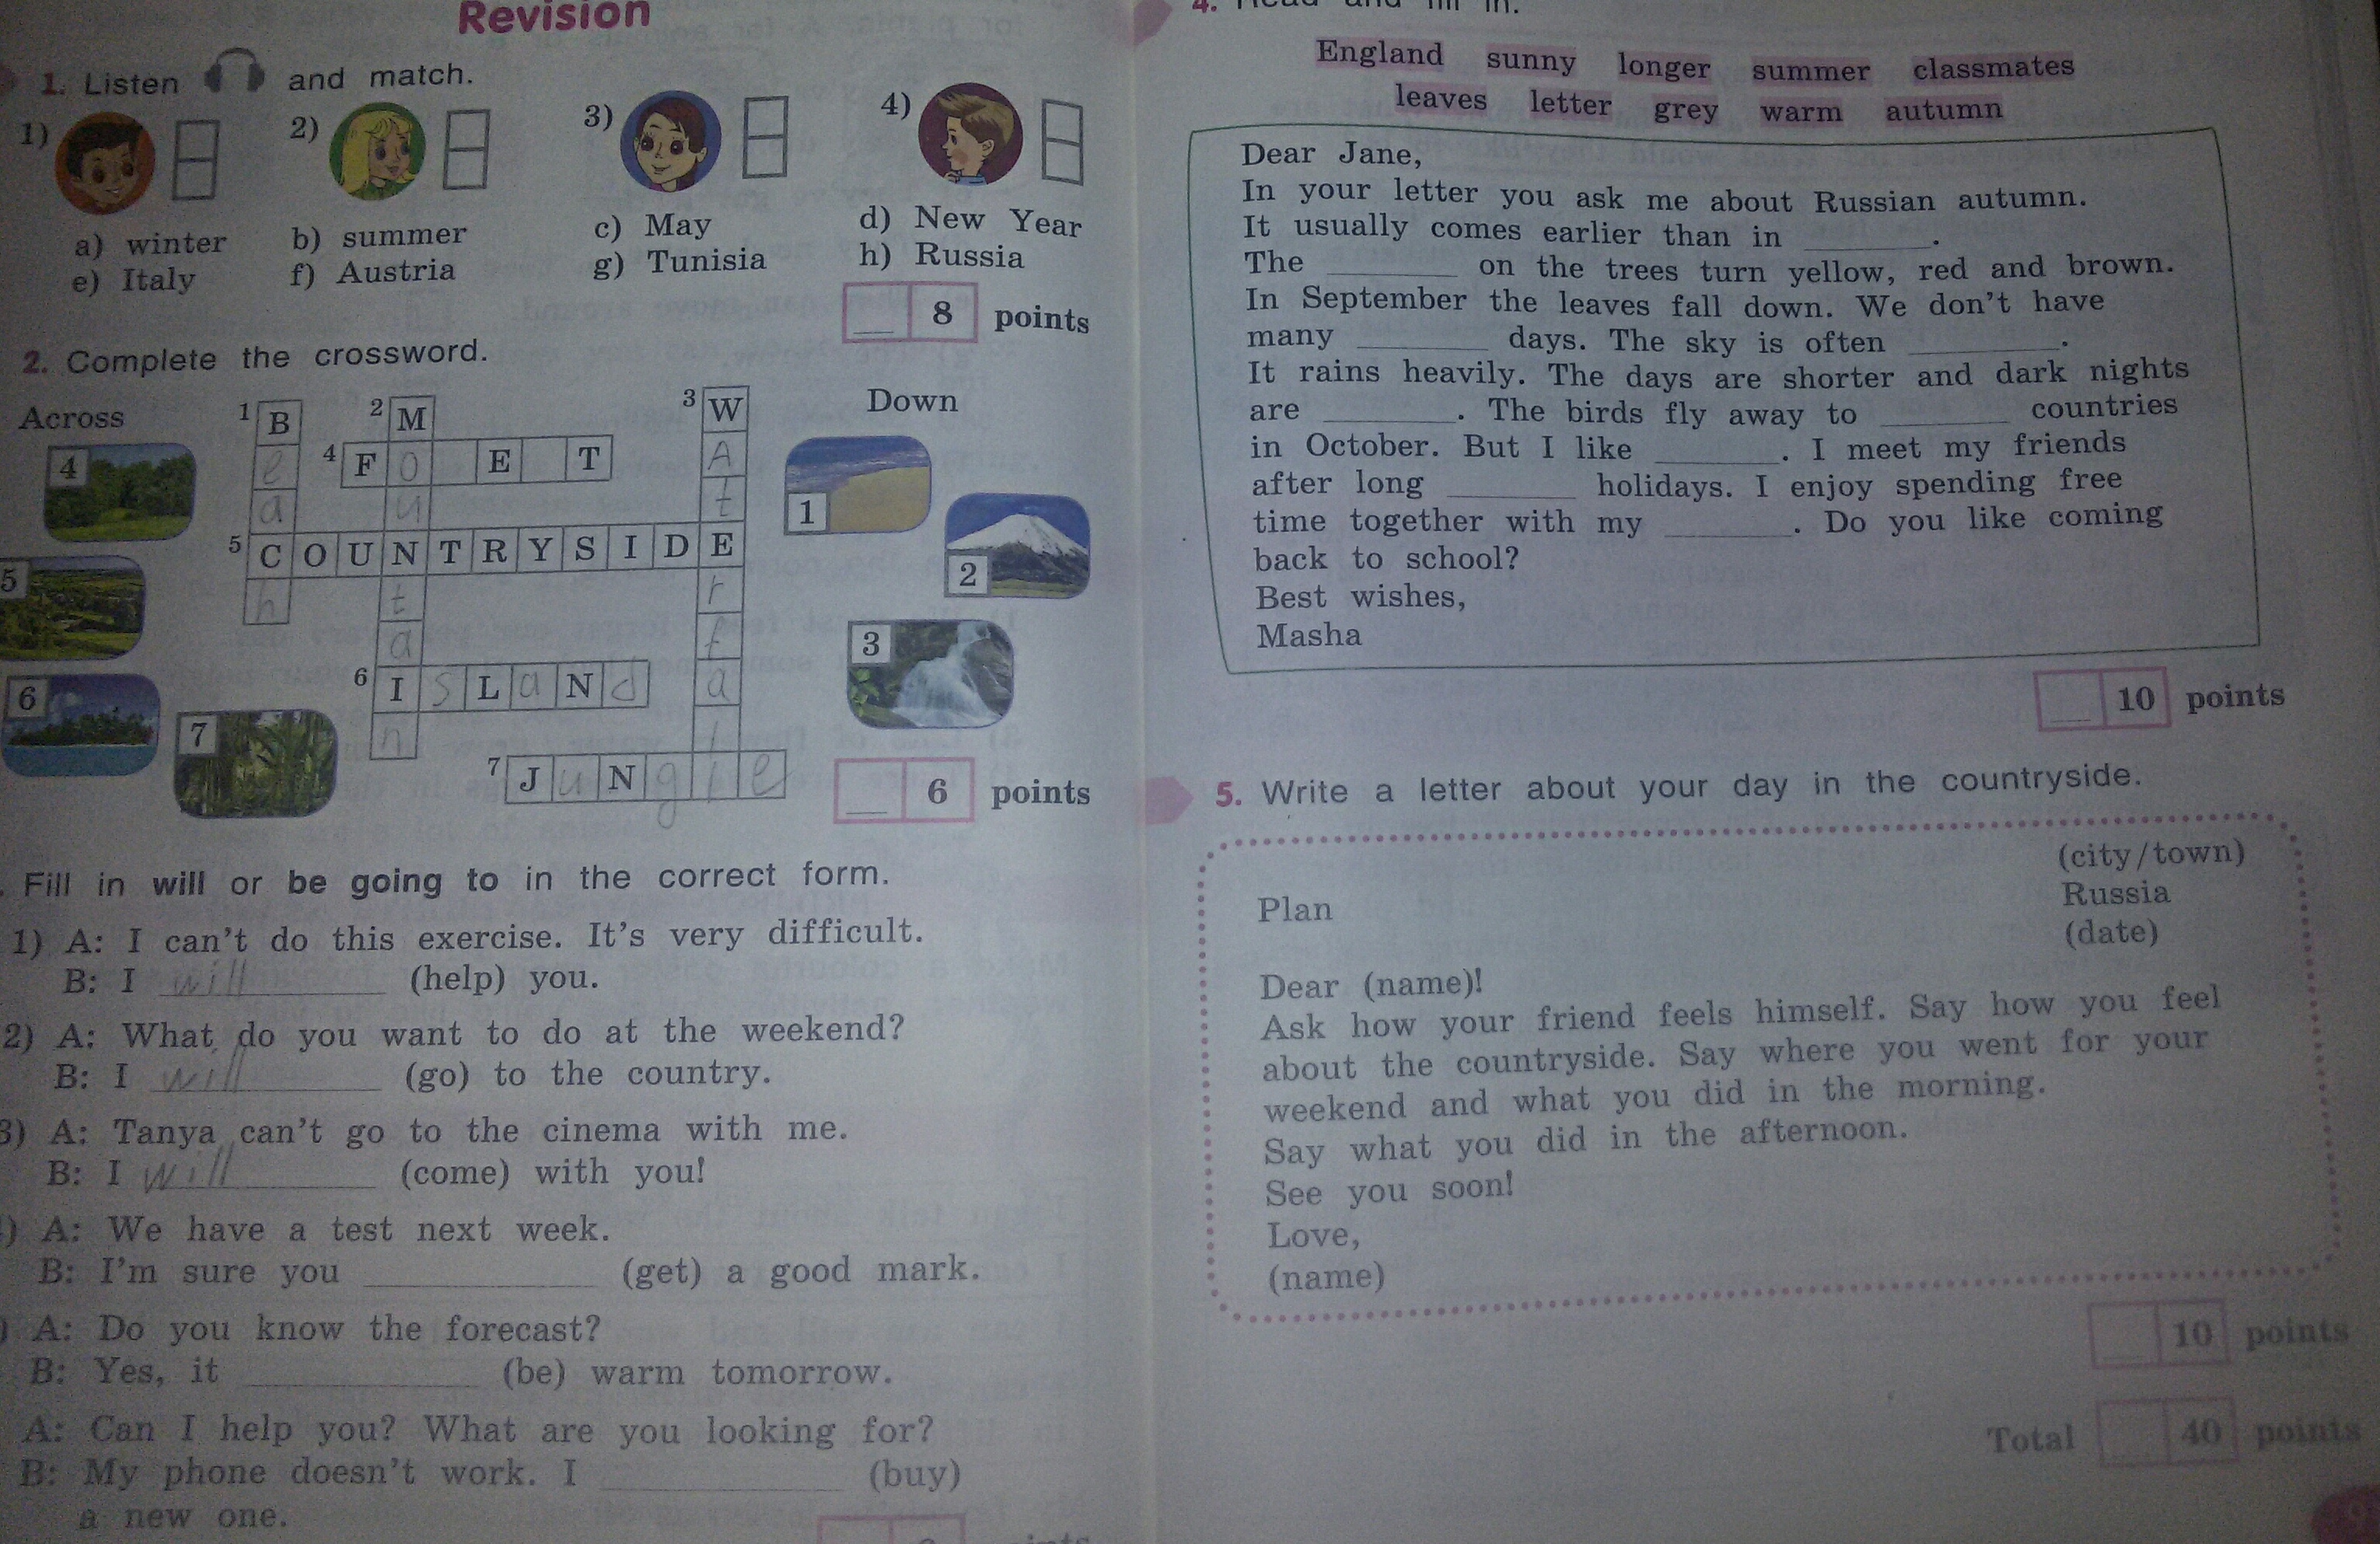 Revision
1. Listen and match.
1)
2)
3)
4)
a) winter b) summer c) May d) New Year
e) Italy f) Austria g) Tunisia h) Russia
8 points
2. Complete the crossword.
Across
Down
1 B e a C h
2 M o u N t a I n
3 W A t E r f a l l
4 F o E T
5 C O U N T R Y S I D E
6 I s L a N d
7 J u N g l e
4
5
6
7
1
2
3
6 points
. Fill in will or be going to in the correct form.
1) A: I can't do this exercise. It's very difficult.
B: I will (help) you.
2) A: What do you want to do at the weekend?
B: I will (go) to the country.
3) A: Tanya can't go to the cinema with me.
B: I will (come) with you!
) A: We have a test next week.
B: I'm sure you (get) a good mark.
) A: Do you know the forecast?
B: Yes, it (be) warm tomorrow.
A: Can I help you? What are you looking for?
B: My phone doesn't work. I (buy)
a new one.
4. Read and fill in.
England sunny longer summer classmates
leaves letter grey warm autumn
Dear Jane,
In your letter you ask me about Russian autumn.
It usually comes earlier than in ________.
The ________ on the trees turn yellow, red and brown.
In September the leaves fall down. We don't have
many ________ days. The sky is often ________.
It rains heavily. The days are shorter and dark nights
are ________. The birds fly away to ________ countries
in October. But I like ________. I meet my friends
after long ________ holidays. I enjoy spending free
time together with my ________. Do you like coming
back to school?
Best wishes,
Masha
10 points
5. Write a letter about your day in the countryside.
(city/town)
Plan Russia
(date)
Dear (name)!
Ask how your friend feels himself. Say how you feel
about the countryside. Say where you went for your
weekend and what you did in the morning.
Say what you did in the afternoon.
See you soon!
Love,
(name)
10 points
Total 40 points